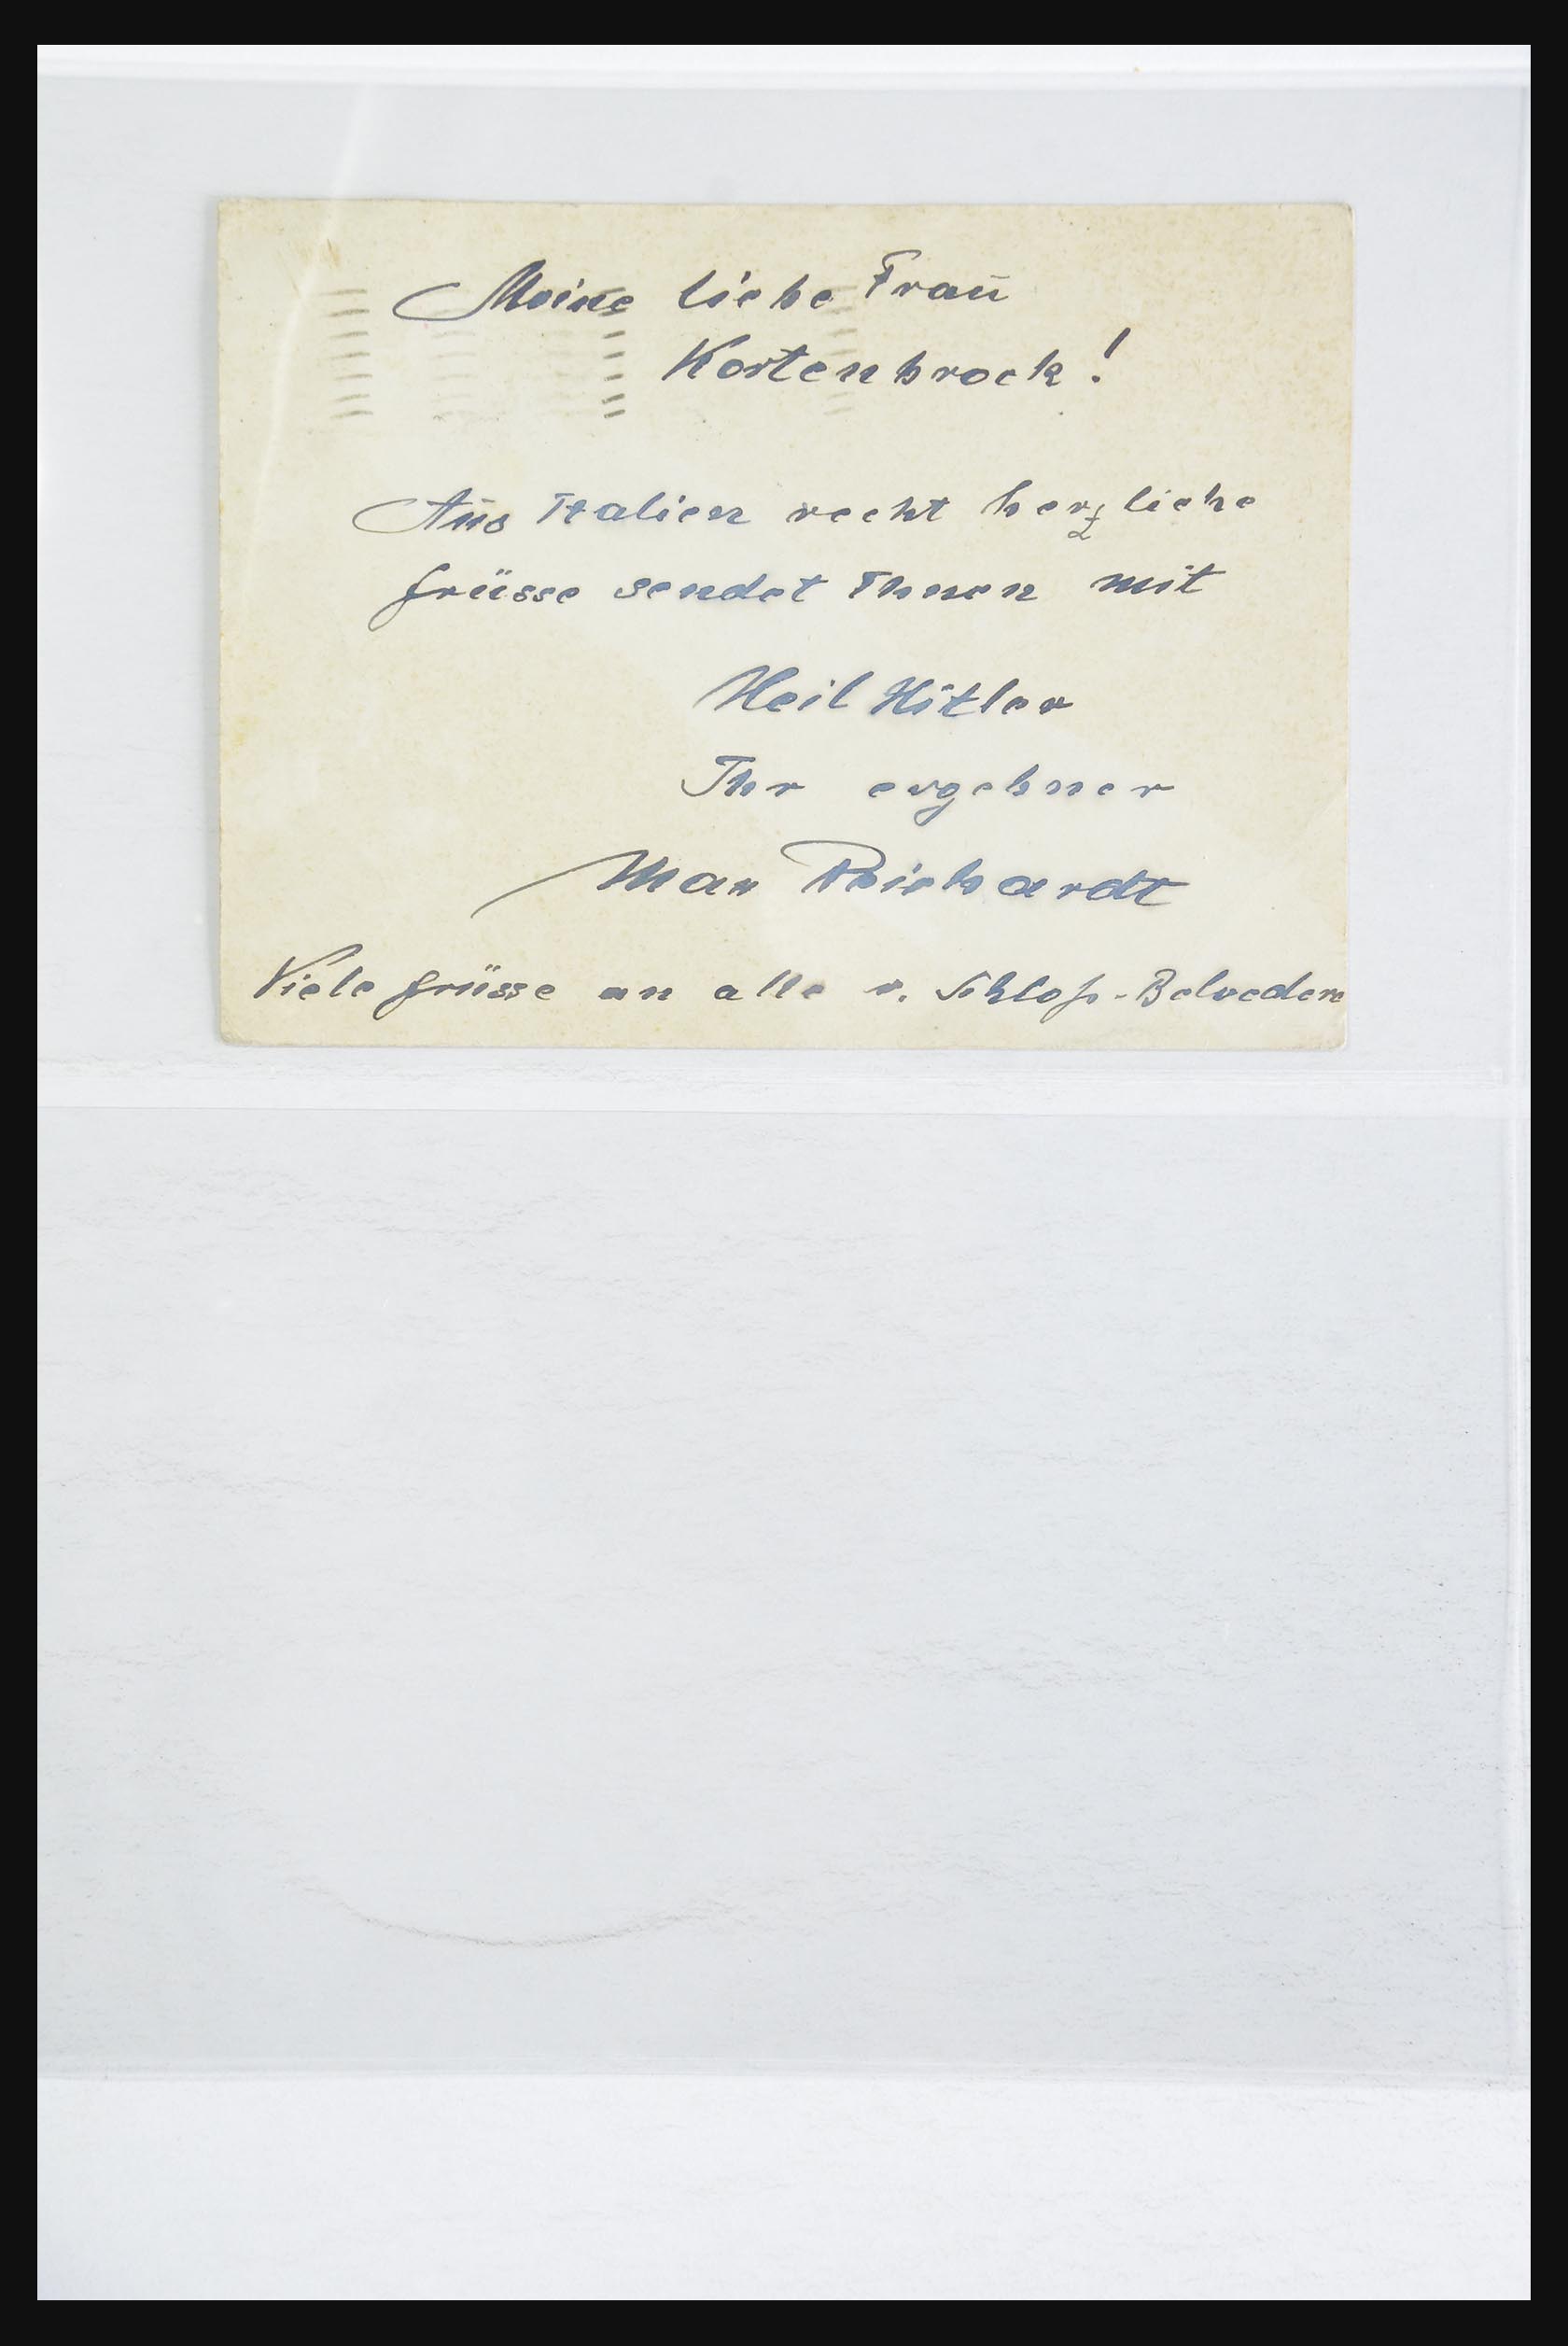 Meine liebe Frau
Kortenbrock!
Aus Italien recht herzliche
Grüsse sendet Ihnen mit
Heil Hitler
Ihr ergebner
Max Reichardt
Viele Grüsse an alle v. Schloß-Belvedere